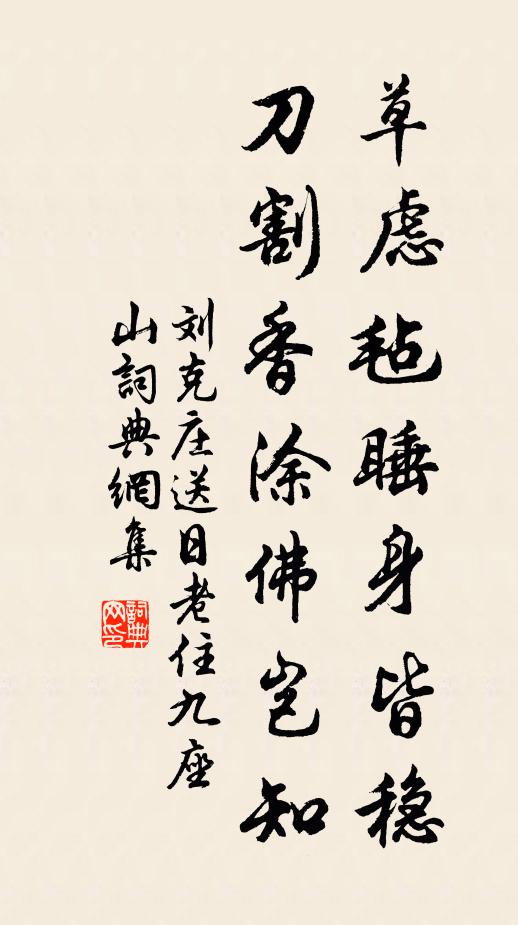 草虑毡睡身皆稳
刀割香涂佛岂知
刘克庄送日老住九座
山詞典網集
詞典
网印